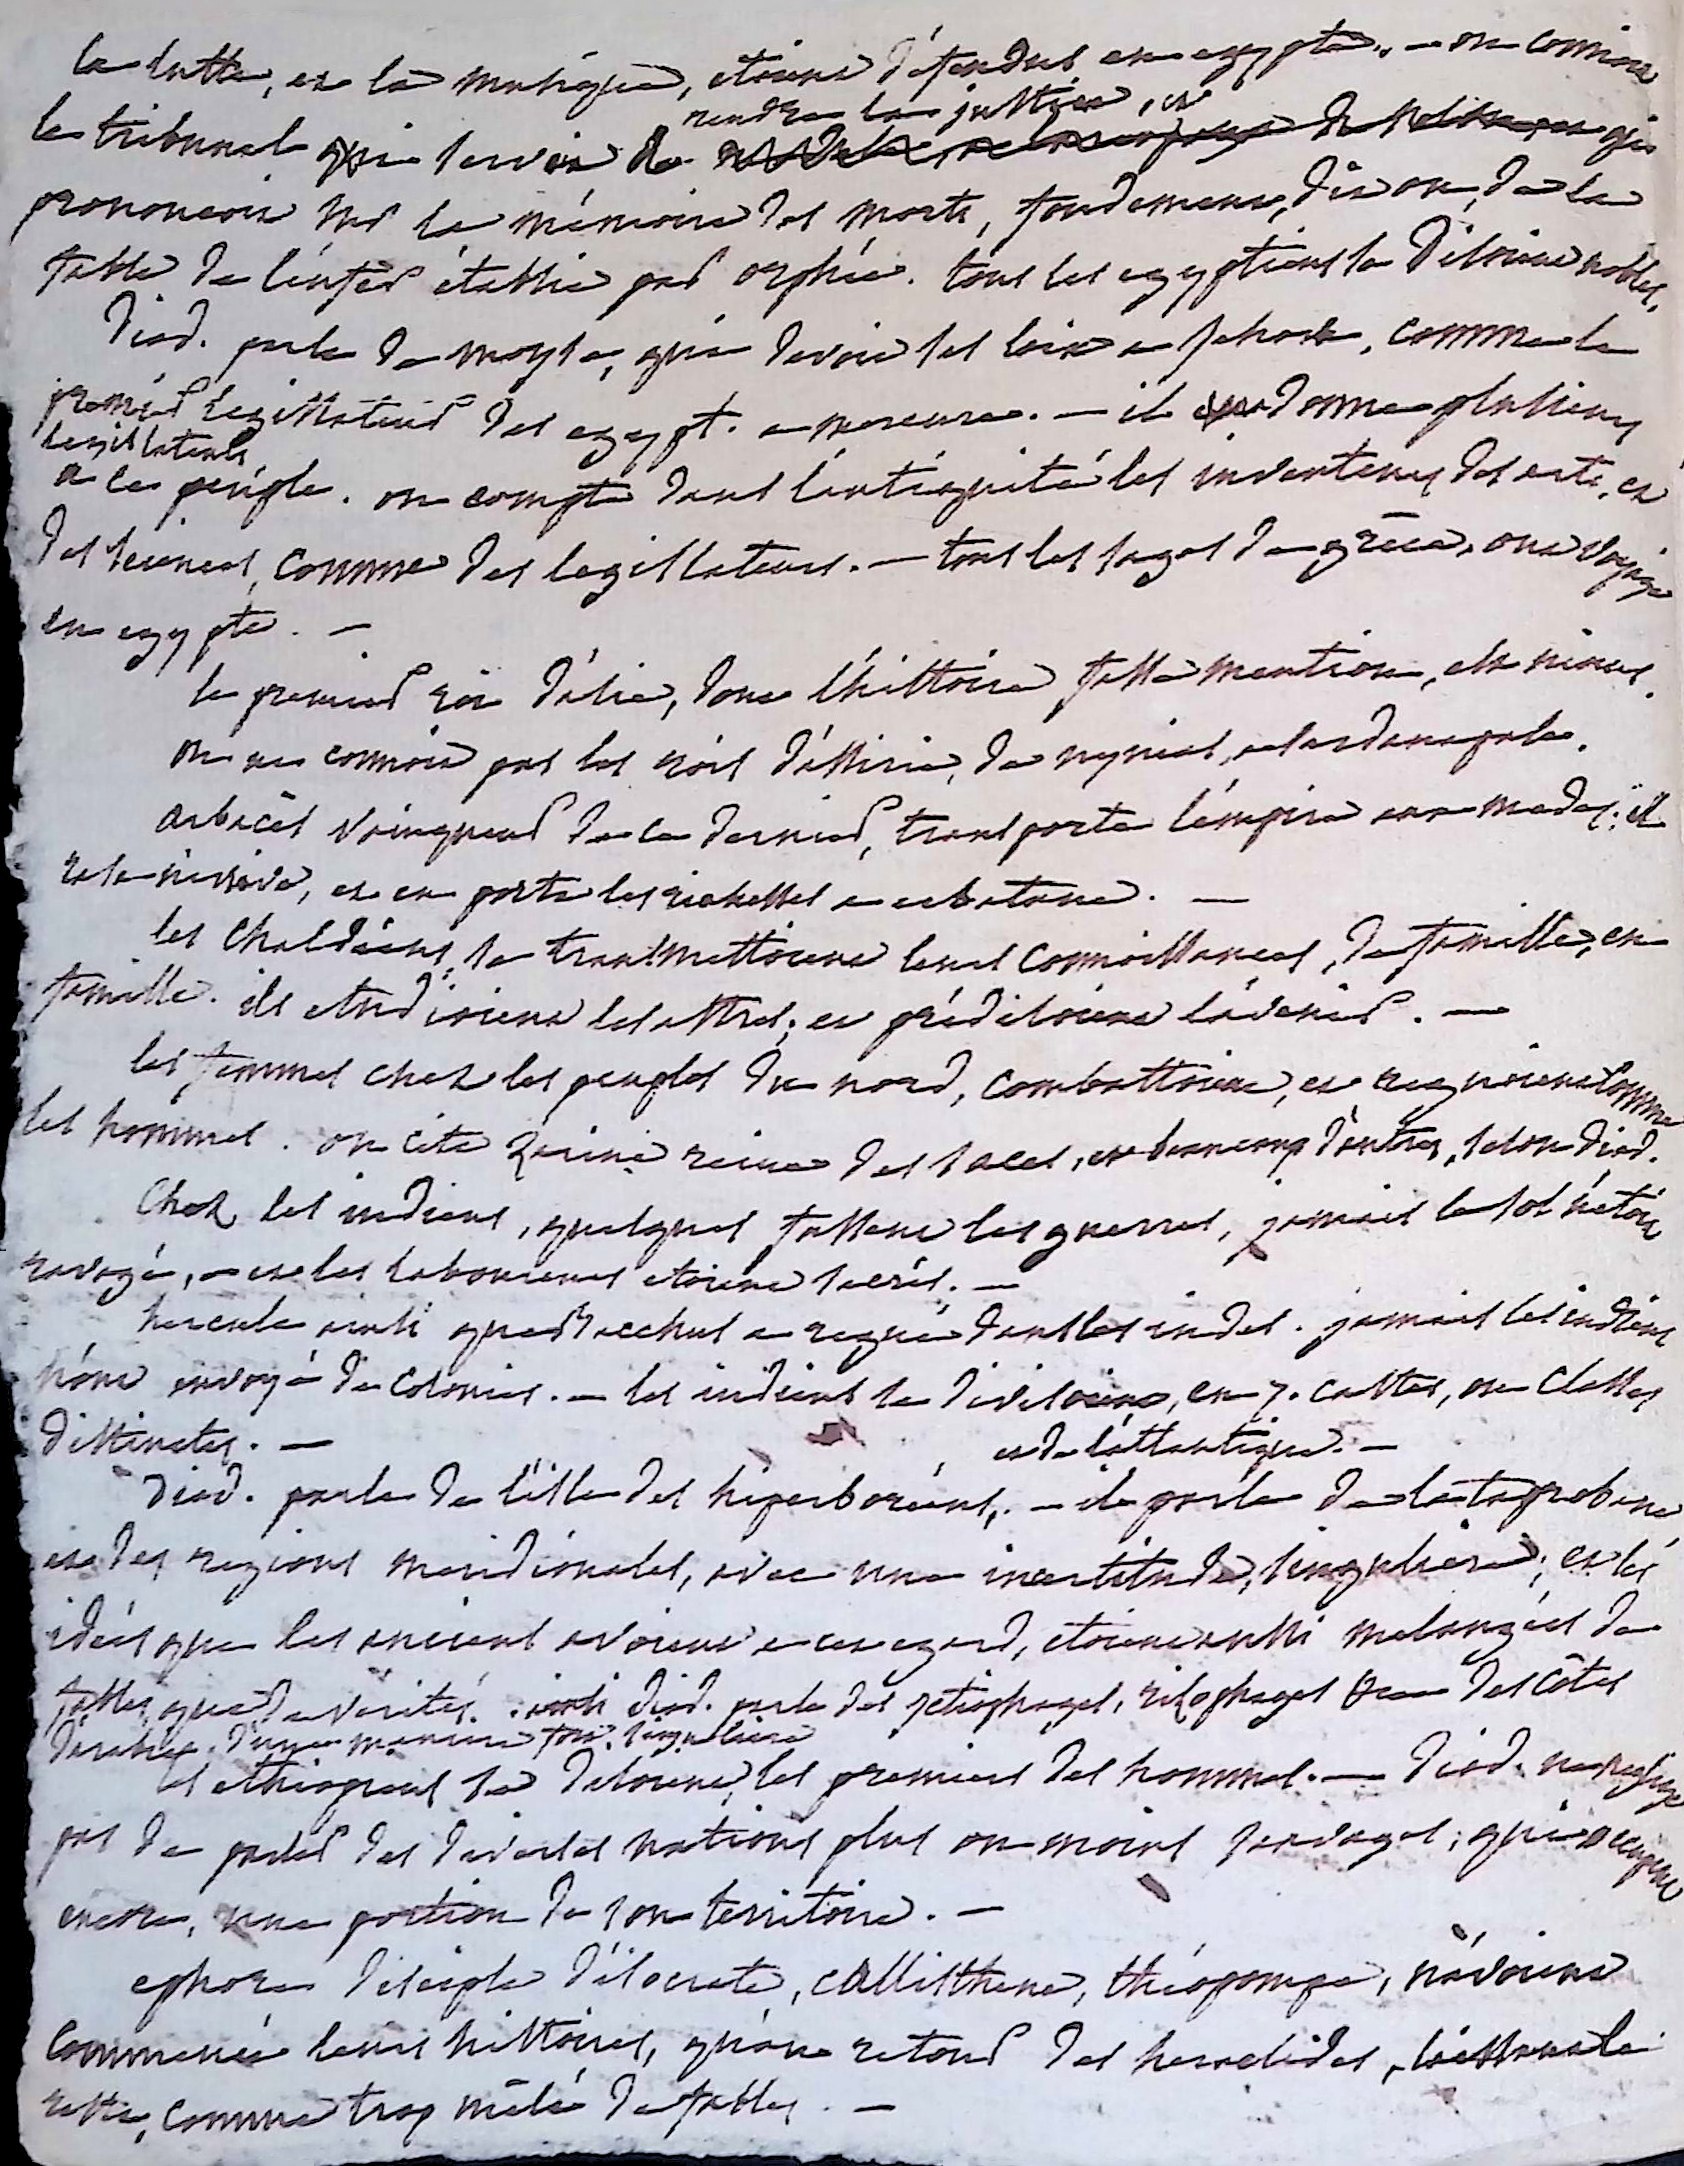 la lutte, et la musique, etoient défendus en egypte. — on connoit
rendre la justice, et
le tribunal qui servoit de qui
prononcoit sur la mémoire des morts, fondement, dit on, de la
fable de l'enfer établie par orphée. tous les egyptiens se disoient nobles.
Diod. parle de moyse, qui devoit ses loix a Jehova, comme le
premier legislateur des egypt. a mercure. — il donne plusieurs
legislateurs
a ce peuple. on compte dans l'antiquité les inventeurs des arts, et
des sciences, comme des legislateurs. — tous les sages de grèce, ont voyagé
en egypte. —
le premier roi d'asie, dont l'histoire fasse mention, est ninus.
on ne connoit pas les rois d'assirie, de nynias, a sardanapale.
arbacès vainqueur de ce dernier, transporte l'empire aux medes; il
rase ninive, et en porte les richesses a ecbatane. —
les Chaldéens, se transmettoient leurs connoissances, de famille, en
famille. ils etudioient les astres, et prédisoient l'avenir. —
les femmes chez les peuples du nord, combattoient, et regnoient comme
les hommes. on cite zarine reine des saces, et beaucoup d'autres, selon diod.
Chez les indiens, quelques fussent les guerres, jamais le sol n'étoit
ravagé, — et les laboureurs etoient sacrés. —
hercule ainsi que Bacchus a regné dans les indes. jamais les indiens
n'ont envoyé de colonies. — les indiens se divisoient, en 7. castes, ou classes
distinctes. —
et de l'atlantique. —
Diod. parle de l'isle des hiperboréens, — il parle de la taprobane
et des regions meridionales, avec une incertitude, singuliere; et les
idées que les anciens avoient a cet egard, etoient aussi melangées de
fables, que de verités. ainsi diod. parle des ictiophages, rizophages &c des côtes
d'arabie. d'une maniere fort singuliere
les ethiopiens se disoient, les premiers des hommes. — Diod. ne neglige
pas de parler des diverses nations plus ou moins sauvages, qui occupent
encore, une portion de son territoire. —
ephore disciple d'isocrate, callisthene, théopompe, n'avoient
commencé leurs histoires, qu'au retour des heraclides, laissant le
reste, comme trop mêlé de fables. —